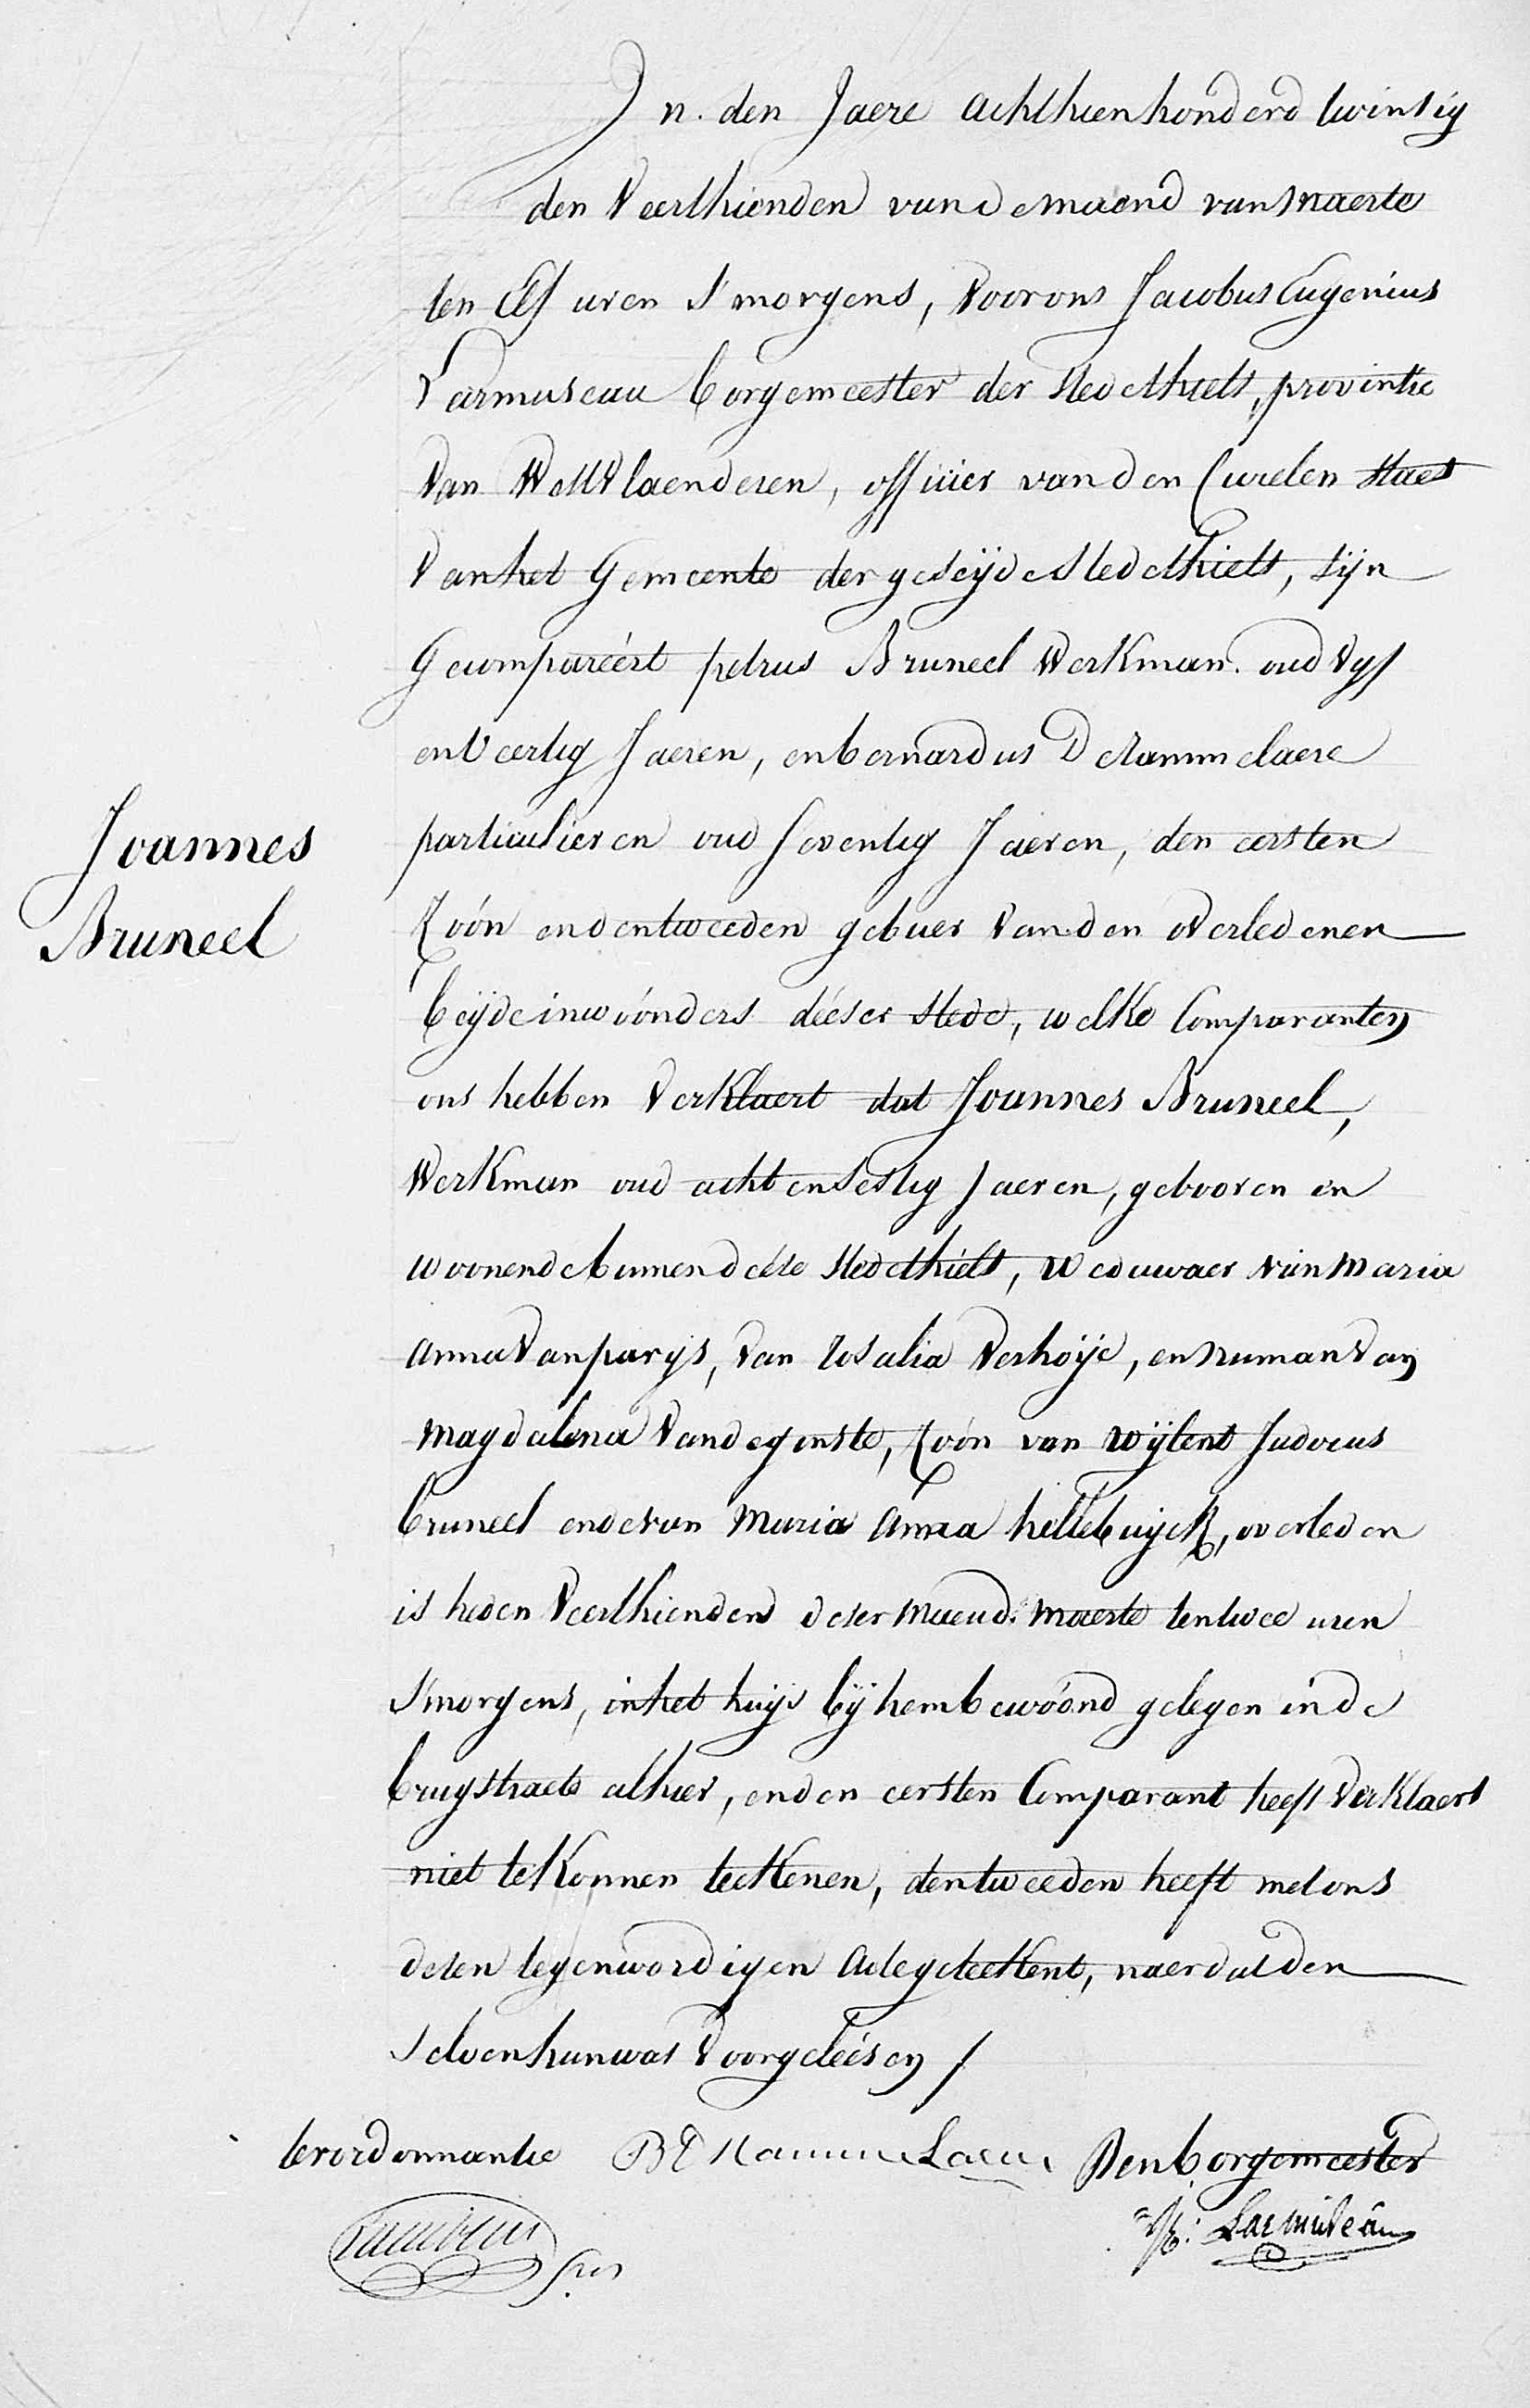 In den Jaere achthienhonderd twintig
den Veerthienden van de maend van maerte
ten Elf uren S'morgens, Voor ons Jacobus Eugenius
Larmuseau borgemeester der stede thielt, provintie
Van WestVlaenderen, officier van den Civielen staet
Van het Gemeente der geseijde stede thielt, sijn
Gecompareért petrus Bruneel Werkman oud Vyf
en Veertig Jaeren, en bernardus DeRammelaere
particulier en oud seventig Jaeren, den eersten
Zoón en den tweeden gebuer Van den overledenen
beÿde inwoónders déeser stede, welke Comparanten
ons hebben Verklaert dat Joannes Bruneel,
Joannes
Bruneel
Werkman oud acht en sestig Jaeren, gebooren en
woonende binnen déese stede thielt, Weduwaer van Maria
anna Vanparys, Van Rosalia Verhoÿe, en nu man Van
Magdalena Vandeginste, Zoón van wÿlent Judocus
bruneel ende van Maria Anna hellebuijck, overleden
is heden Veerthienden deser Maend. Maerte ten twee uren
S'morgens, in het huijs bÿ hem bewoónd gelegen in de
brugstraete alhier, en den eersten Comparant heeft Verklaert
niet te Konnen teekenen, den tweeden heeft met ons
desen tegenwordigen acte geteekent, naer dat den
selven hun was Voorgeleésen /
ter ordonnantie B DRammeLaere Den borgemeester
JE: Larmuseau
Sres